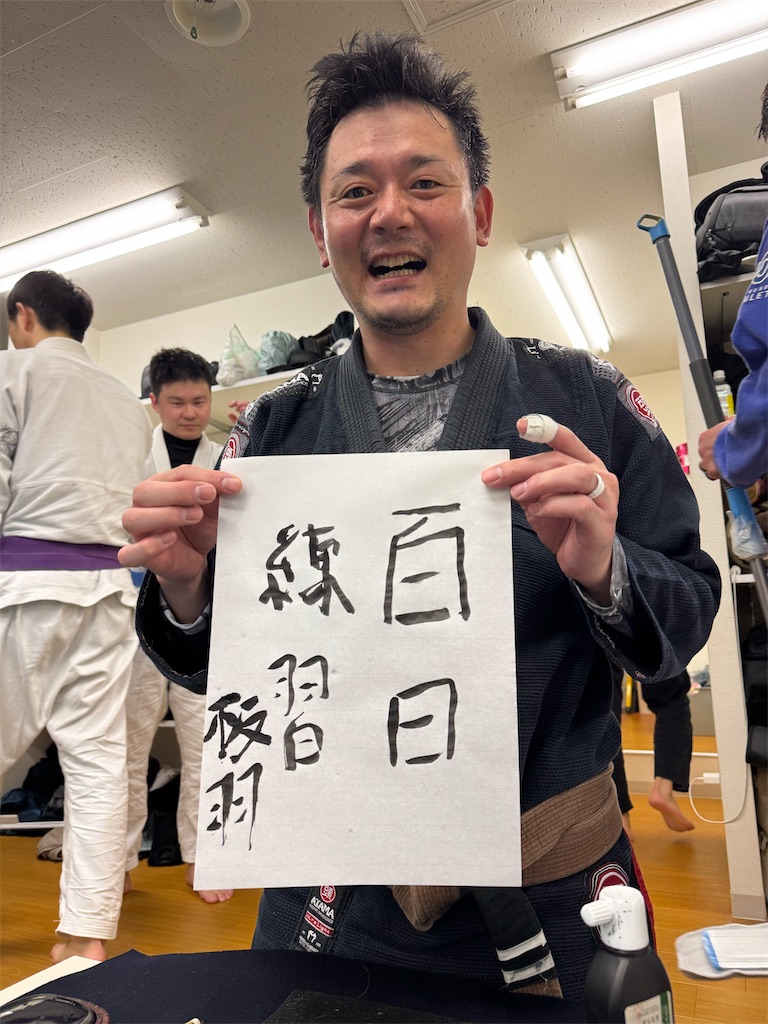 百日
練習
板羽
ATAMA